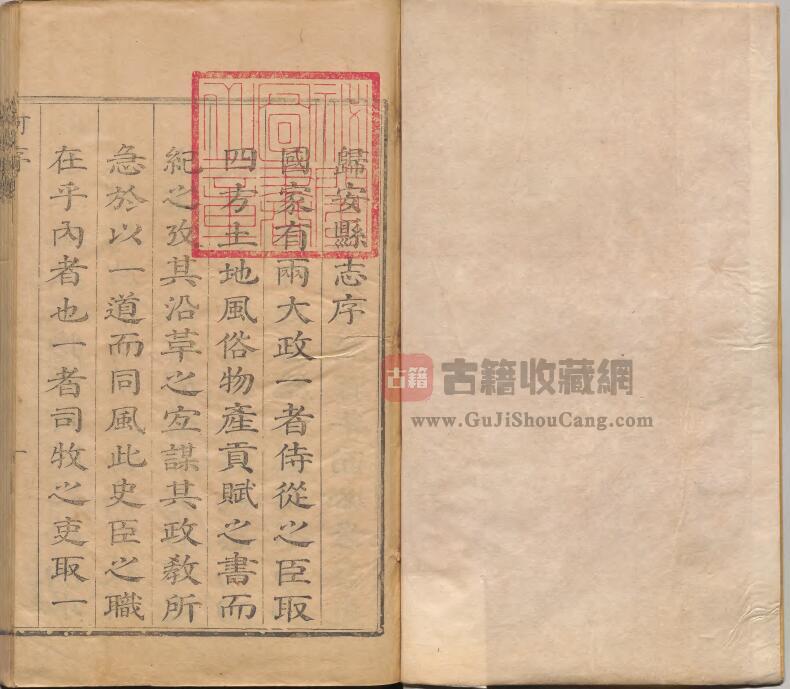 歸安縣志序
國家有兩大政一者侍從之臣取
四方土地風俗物產貢賦之書而
紀之攷其沿革之宐謀其政教所
急於以一道而同風此史臣之職
在乎內者也一者司牧之吏取一
序
一
古籍
古籍收藏網
www.GuJiShouCang.com